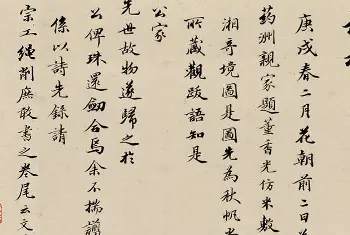 庚戌春二月花朝前二日
药洲親家題董香光仿米敷
湘奇境圖是圖先為秋帆
所藏觀跋語知是
公家
先世故物遂歸之於
公俾珠還劍合焉余不揣譾
係以詩先錄請
宗工繩削廡敢書之卷尾云文